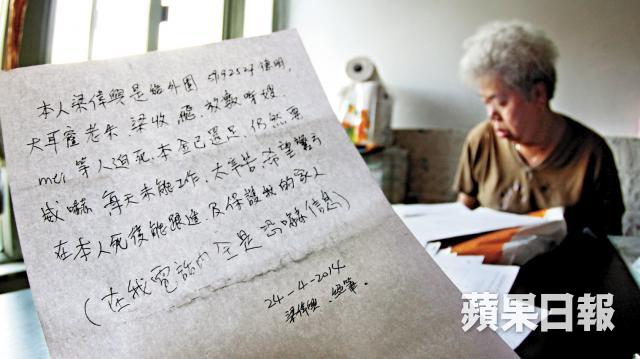 本人梁偉興是給外圍
大耳窿老朱、梁收
mei 等人迫死,本金已還足,仍然要
威嚇,每天未能工作,太辛苦,希望警方
在本人死後能跟進,及保護我的家人
(在我電話內全是恐嚇信息)
24-4-2014
梁偉興
蘋果日報